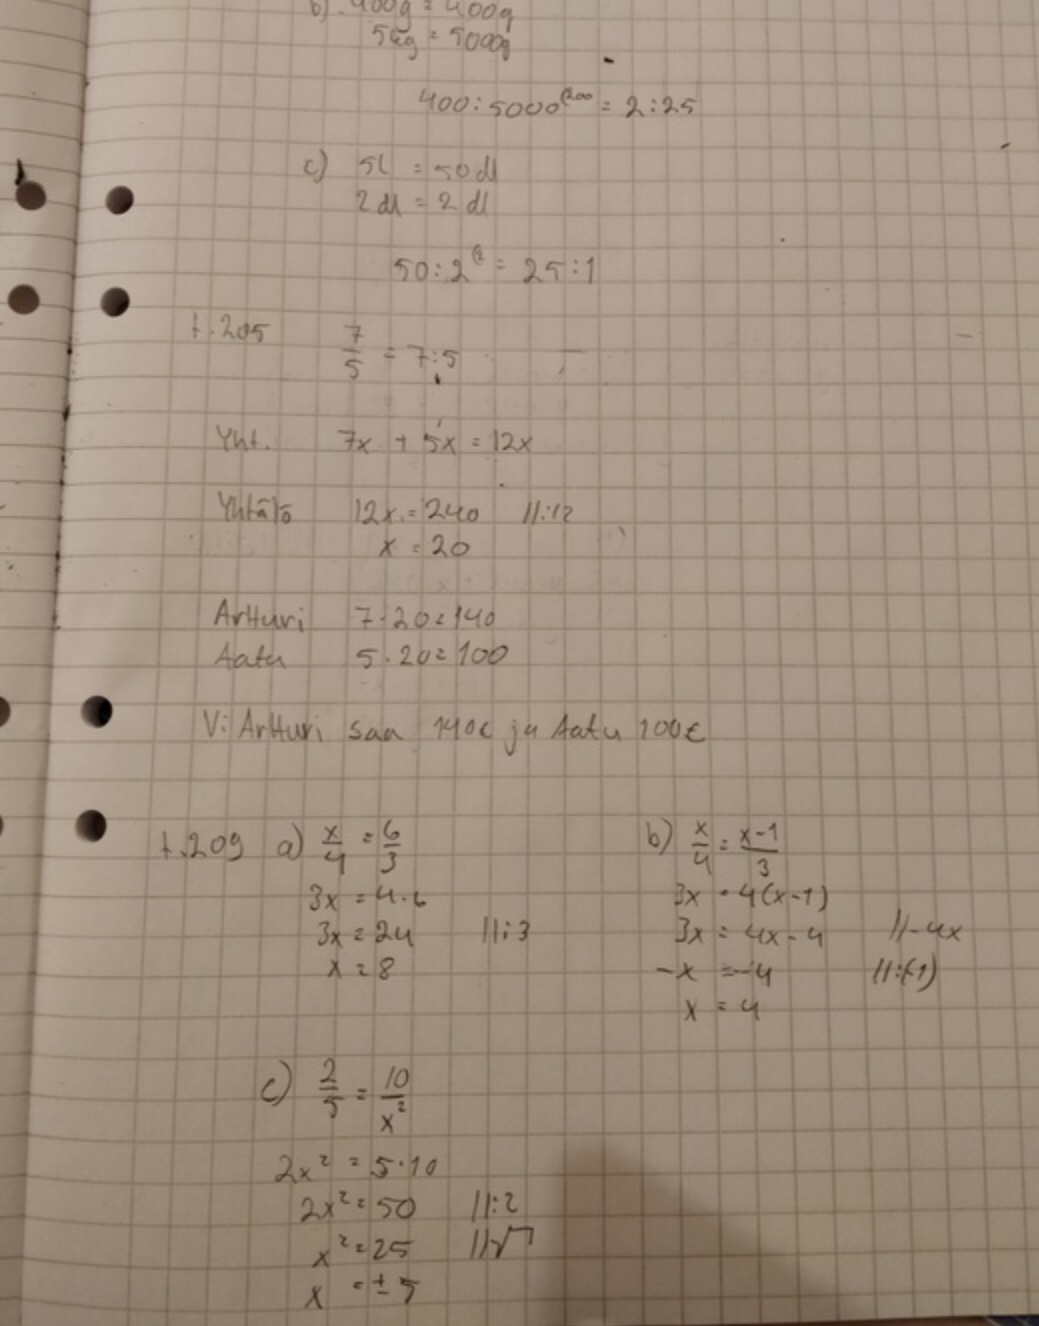 b) 400g = 400g
5kg = 5000g
400:5000⁽²⁰⁰ = 2:25
c) 5l = 50dl
2dl = 2dl
50:2⁽² = 25:1
t.205 7/5 = 7:5
Yht. 7x + 5x = 12x
Yhtälö 12x = 240 ||:12
x = 20
Artturi 7·20=140
Aatu 5·20=100
V: Artturi saa 140€ ja Aatu 100€
t.209 a) x/4 = 6/3
3x = 4·6
3x = 24 ||:3
x = 8
b) x/4 = x-1/3
3x = 4(x-1)
3x = 4x-4 ||-4x
-x = -4 ||:(-1)
x = 4
c) 2/5 = 10/x²
2x² = 5·10
2x² = 50 ||:2
x² = 25 ||√
x = ±5